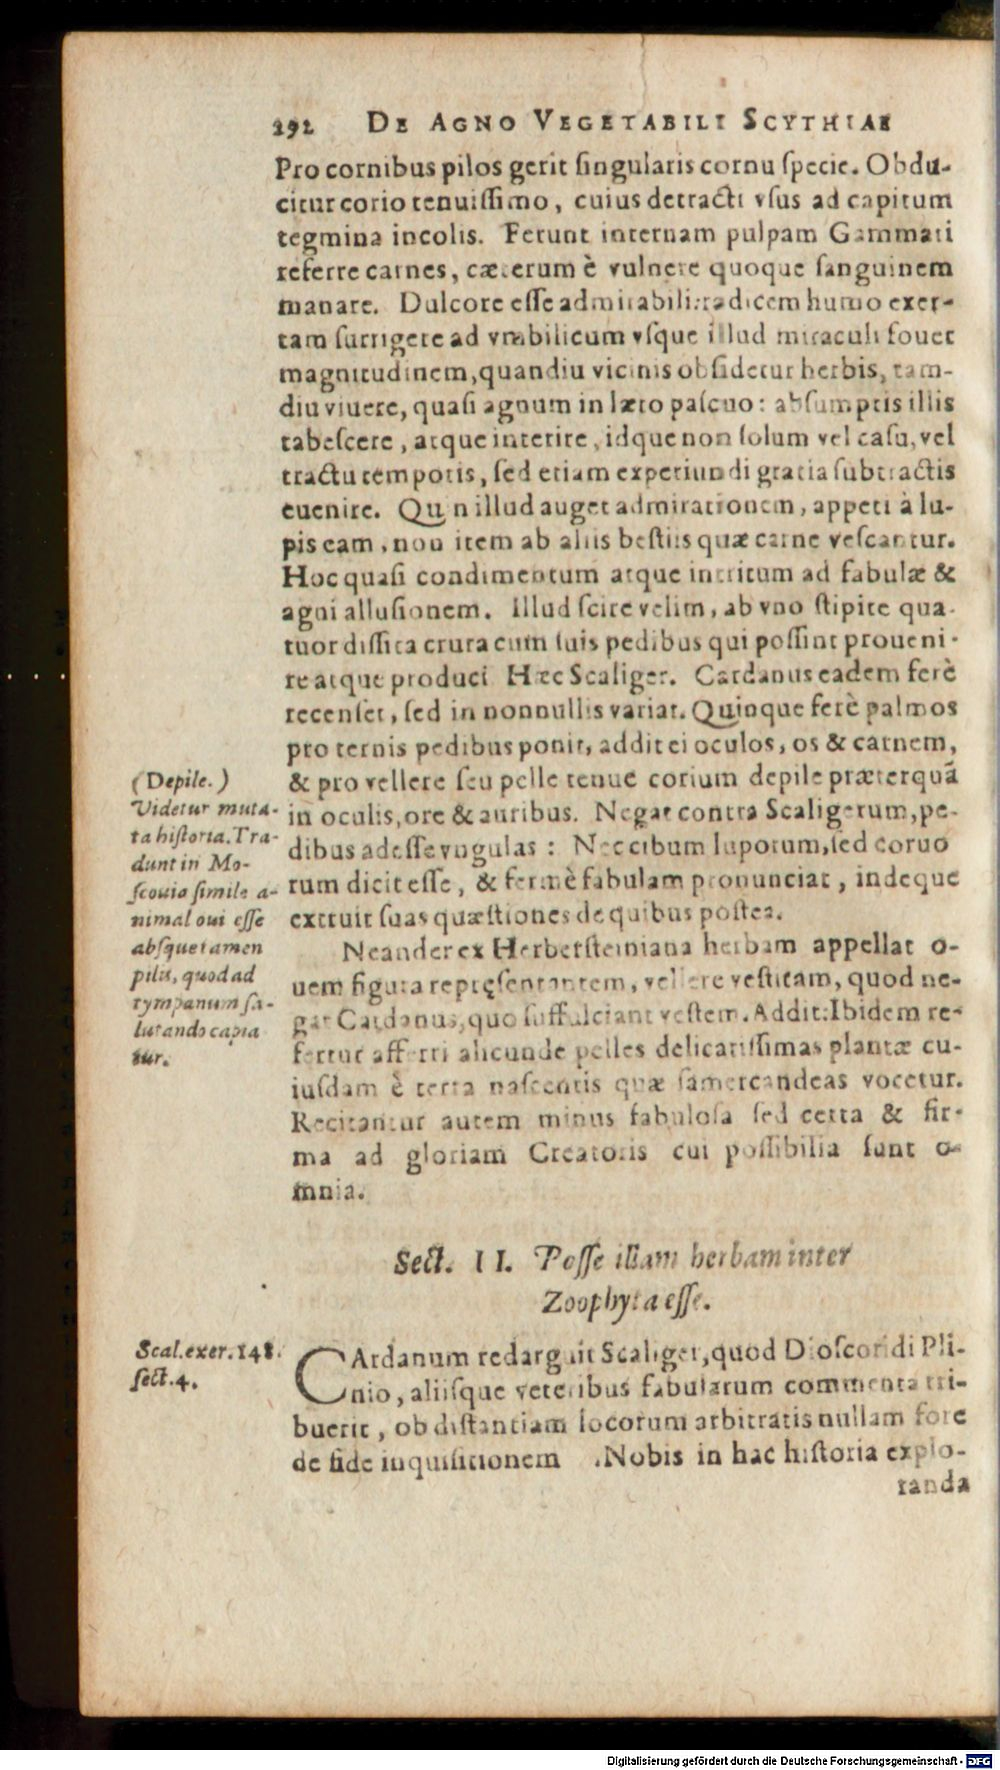 292 DE AGNO VEGETABILI SCYTHIAE
Pro cornibus pilos gerit ſingularis cornu ſpecie. Obdu-
citur corio tenuiſſimo, cuius detracti vſus ad capitum
tegmina incolis. Ferunt internam pulpam Gammari
referre carnes, cæterum è vulnere quoque ſanguinem
manare. Dulcore eſſe admirabili: radicem humo exer-
tam ſurrigere ad vmbilicum vſque illud miraculi fouet
magnitudinem, quandiu vicinis obſidetur herbis, tam-
diu viuere, quaſi agnum in læto paſcuo: abſumptis illis
tabeſcere, atque interire, idque non ſolum vel caſu, vel
tractu temporis, ſed etiam experiundi gratia ſubtractis
euenire. Quin illud auget admirationem, appeti à lu-
pis eam, non item ab aliis beſtiis quæ carne veſcantur.
Hoc quaſi condimentum atque intritum ad fabulæ &
agni alluſionem. Illud ſcire velim, ab vno ſtipite qua-
tuor diſſita crura cum ſuis pedibus qui poſſint proueni-
re atque produci Hæc Scaliger. Cardanus eadem ferè
recenſet, ſed in nonnullis variat. Quinque ferè palmos
pro ternis pedibus ponit, addit ei oculos, os & carnem,
& pro vellere ſeu pelle tenue corium depile præterquā
in oculis, ore & auribus. Negat contra Scaligerum, pe-
dibus adeſſe vngulas: Nec cibum luporum, ſed coruo
rum dicit eſſe, & fermè fabulam pronunciat, indeque
extruit ſuas quæſtiones de quibus poſtea.
(Depile.)
Videtur muta-
ta hiſtoria. Tra-
dunt in Mo-
ſcouia ſimile a-
nimal oui eſſe
abſque tamen
pilis, quod ad
tympanum ſa-
lutando capia
tur.
Neander ex Herberſteiniana herbam appellat o-
uem figura repręſentantem, vellere veſtitam, quod ne-
gat Cardanus, quo ſuffulciant veſtem. Addit: Ibidem re-
fertur afferri alicunde pelles delicatiſſimas plantæ cu-
iuſdam è terra naſcentis quæ ſamercandeas vocetur.
Recitantur autem minus fabuloſa ſed certa & fir-
ma ad gloriam Creatoris cui poſſibilia ſunt o-
mnia.
Sect. II. Poſſe illam herbam inter
Zoophyta eſſe.
Scal. exer. 148.
ſect. 4.
CArdanum redarguit Scaliger, quod Dioſcoridi Pli-
nio, aliiſque veteribus fabularum commenta tri-
buerit, ob diſtantiam locorum arbitratis nullam fore
de fide inquiſitionem. Nobis in hac hiſtoria explo-
randa
Digitalisierung gefördert durch die Deutsche Forschungsgemeinschaft - DFG